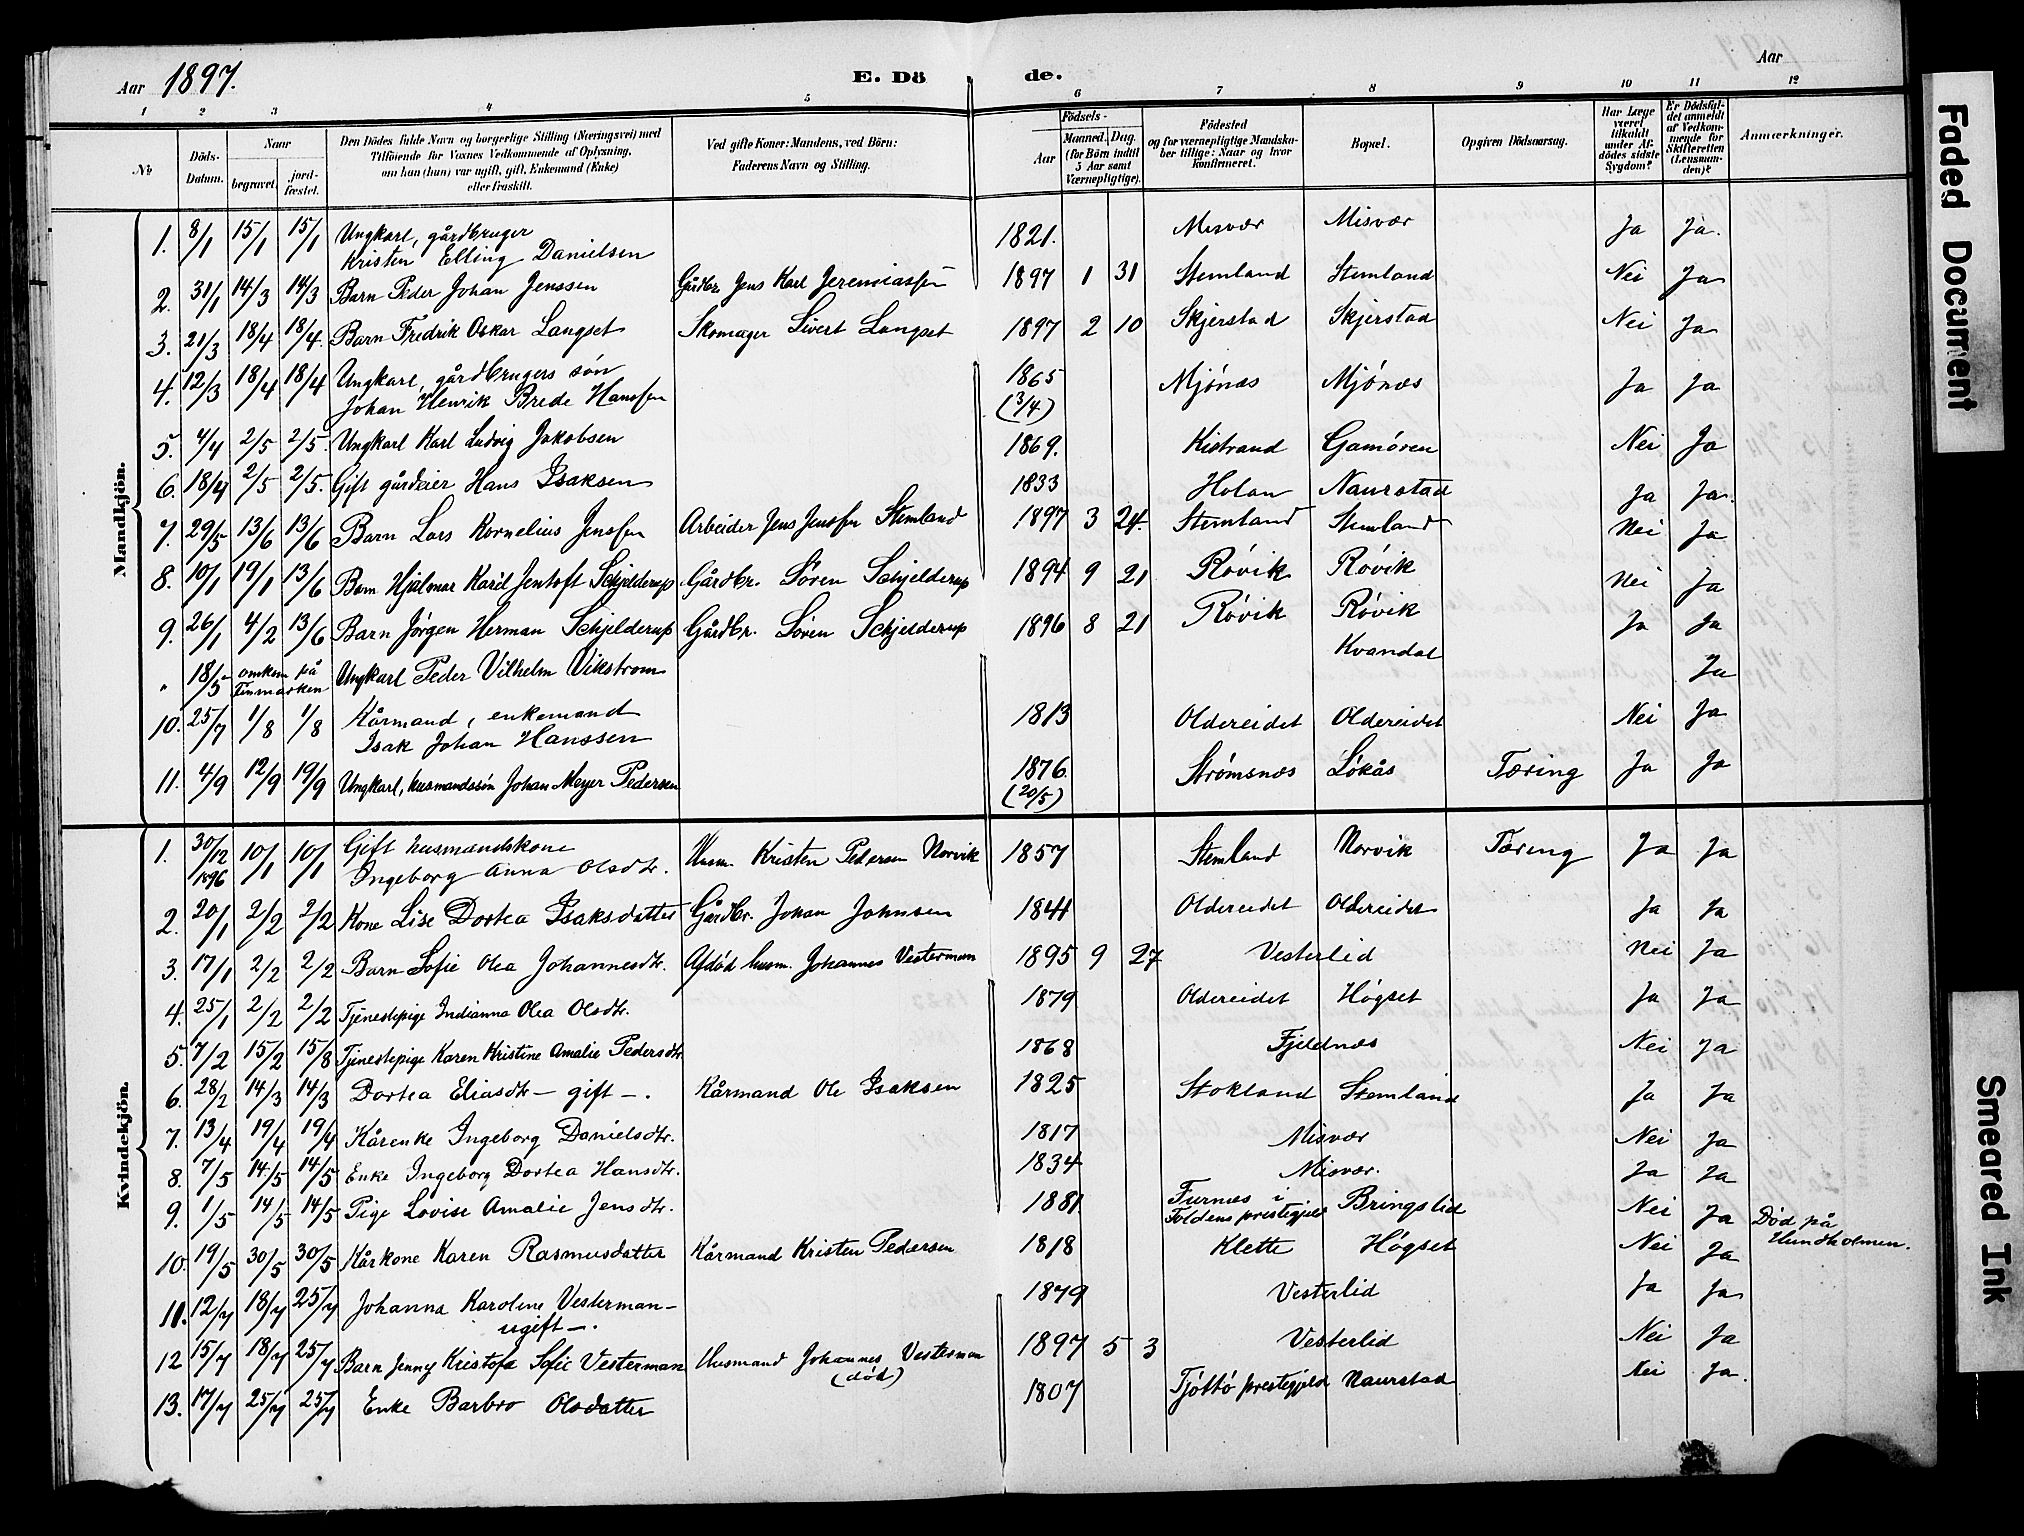 Aar 1897.
E. Dö de.
Aar
1 2 3 4 5 6 7 8 9 10 11 12
No
Döds-Datum.
Naar
begravet.
jord-fæstet.
Den Dödes fulde Navn og borgerlige Stilling (Næringsvei) med
Tilföiende for Voxnes Vedkommende af Oplysning,
om han (hun) var ugift, gift, Enkemand (Enke)
eller fraskilt.
Ved gifte Koner: Mandens, ved Börn:
Faderens Navn og Stilling.
Födsels-
Aar
Maaned. Dag.
(for Börn indtil
5 Aar samt
Værnepligtige).
Födested
og for værnepligtige Mandska-
ber tillige: Naar og hvor
konfirmeret.
Bopæl.
Opgiven Dödsaarsag.
Har Læge
været
tilkaldt
under Af-
dödes sidste
Sygdom?
Er Dödsfal-
det anmeldt
af Vedkom-
mende for
Skifteretten
(Lensman-
den)?
Anmærkninger.
Mandkjön.
1. 8/1 15/1 15/1 Ungkarl, gårdbruger 1821. Misvær Misvær Ja Ja.
Kristen Elling Danielsen
2. 31/1 14/3 14/3 Barn Peder Johan Jenssen Gårdbr Jens Karl Jeremiassen 1897 1 31 Stemland Stemland Nei Ja
3. 21/3 18/4 18/4. Barn Fredrik Oskar Langset Skomager Sivert Langset 1897 2 10 Skjerstad Skjerstad Nei Ja
4. 12/3 18/4 18/4 Ungkarl, gårdbrugers søn 1865 Mjónæs Mjónæs Ja Ja
Johan Henrik Brede Hanssen (3/4)
5. 4/4 2/5 2/5. Ungkarl Karl Ludvig Jakobsen 1869. Kistrand Gamóren Nei Ja
6. 18/4 2/5 2/5. Gift gårdeier Hans Isaksen 1833 Holan Naurstad Ja Ja.
7. 29/5 13/6 13/6 Barn Lars Kornelius Jenssen Arbeider Jens Jenssen Stemland 1897 3 24. Stemland Stemland Nei Ja
8. 10/1 19/1 13/6 Barn Hjalmar Karil Jentoft Schjelderup Gårdbr. Sören Schjelderup 1894 9 21 Róvik Róvik Nei Ja
9. 26/1 4/2 13/6 Barn Jörgen Herman Schjelderup Gårdbr. Sören Schjelderup 1896 8 21 Róvik Róvik Ja Ja
" 18/5 omkom på Finmarken Ungkarl Peder Vilhelm Vikstrom Kvandal Ja
10. 25/7 1/8 1/8 Kårmand, enkemand 1813 Oldereidet Oldereidet Nei Ja
Isak Johan Hanssen
11. 4/9 12/9 19/9 Ungkarl, husmandssón Johan Meyer Pedersen 1876. (20/5) Strómsnæs Lókås Tæring Ja Ja
Kvindekjön.
1. 30/12 1896 10/1 10/1 Gift husmandskone Husm. Kristen Pedersen Norvik 1857 Stemland Norvik Tæring Ja Ja
Ingeborg Anna Olsdtr.
2. 20/1 2/2 2/2 Kone Lise Dortea Isaksdatter Gårdbr. Johan Johnsen 1844 Oldereidet Oldereidet Ja Ja
3. 17/1 2/2 2/2 Barn Sofie Olea Johannesdtr. Afdød husm. Johannes Vesterman 1895 9 27 Vesterlid Nei Ja
4. 25/1 2/2 2/2 Tjenestepige Indianna Olea Olsdtr. 1879 Oldereidet Högset Ja Ja
5. 7/2 15/2 15/8 Tjenestepige Karen Kristine Amalie Pedersdtr 1868 Fjeldnæs Nei Ja
6. 28/2 14/3 14/3 Dortea Eliasdtr – gift –. Kårmand Ole Isaksen 1825 Stokland Stemland Ja Ja
7. 13/4 19/4 19/4 Kårenke Ingeborg Danielsdtr. 1817 Misvær Nei Ja
8. 7/5 14/5 14/5 Enke Ingeborg Dortea Hansdtr. 1834 Misvær. Ja Ja
9. 1/5 14/5 14/5 Pige Lovise Amalie Jensdtr. 1881 Furnæs i Foldens prestegjeld Bringslid Nei Ja Død på Hundholmen.
10. 19/5 30/5 30/5 Kårkone Karen Rasmusdatter Kårmand Kristen Pedersen 1818 Klette Högset Nei Ja
11. 12/7 18/7 25/7 Johanna Karoline Vesterman – 1879 Vesterlid Ja Ja
ugift –.
12 15/7 18/7 25/7 Barn Jenny Kristofa Sofie Vesterman Husmand Johannes Vesterman (død) 1897 5 3 Vesterlid Nei Ja
13. 17/7 25/7 25/7 Enke Barbro Olsdatter 1807 Tjóttó prestegjeld Naurstad Nei Ja.
Faded Document
Smeared Ink